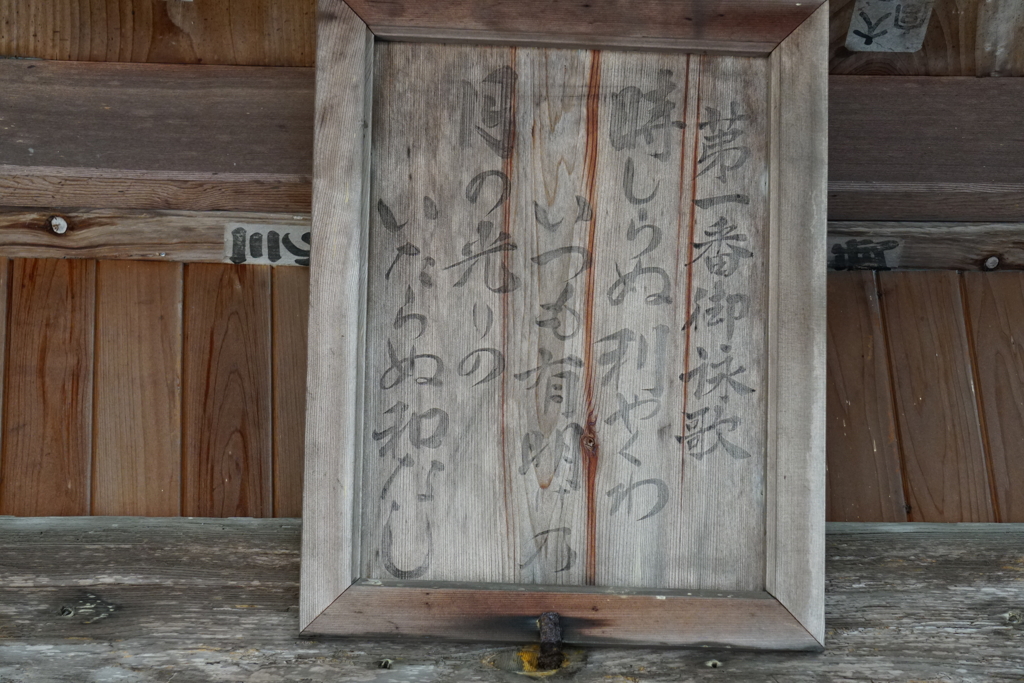 第一番御詠歌
時しらぬ利やくわ
いつも有明乃
月の光りの
いたらぬ和なし